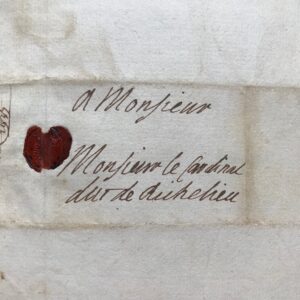 A Monsieur
Monsieur le Cardinal
duc de Richelieu